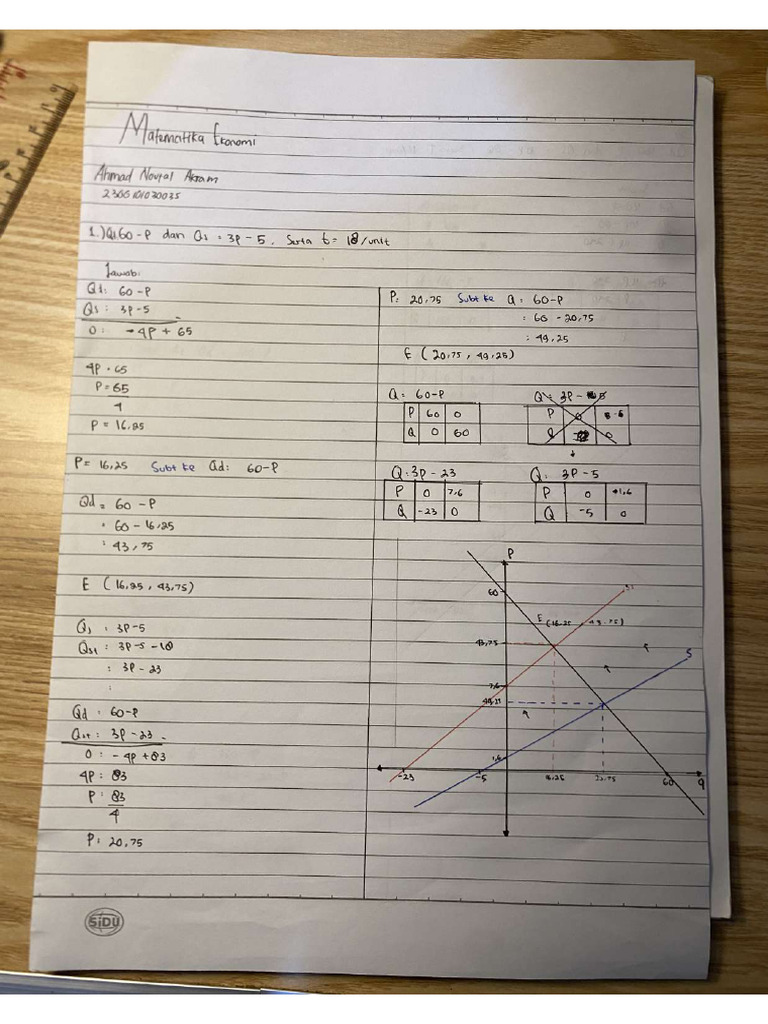 Matematika Ekonomi
Ahmad Noufal Akram
2306101030035
1.) Qd: 60-P dan Qs = 3P-5. Serta t = 18/unit
Jawab:
Qd: 60-P
Qs: 3P-5
0: -4P + 65
4P = 65
P = 65
4
P = 16,25
P = 16,25 Subt ke Qd: 60-P
Qd = 60 - P
: 60 - 16,25
: 43,75
E (16,25, 43,75)
Qs : 3P-5
Qst : 3P-5-18
: 3P - 23
:
Qd : 60-P
Qst : 3P-23 -
0 : -4P + 83
4P: 83
P: 83
4
P: 20,75
P: 20,75 Subt ke Q: 60-P
: 60 - 20,75
: 49,25
E (20,75, 49,25)
Q: 60-P
P 60 0
Q 0 60
Q: 3P-
P 0
Q 0
Q: 3P - 23
P 0 7,6
Q -23 0
Q: 3P-5
P 0 1,6
Q -5 0
P
60
E (16.25, 43.75)
S
43,75
7,6
49,25
1,6
-23 -5 16,25 60 Q
SiDU